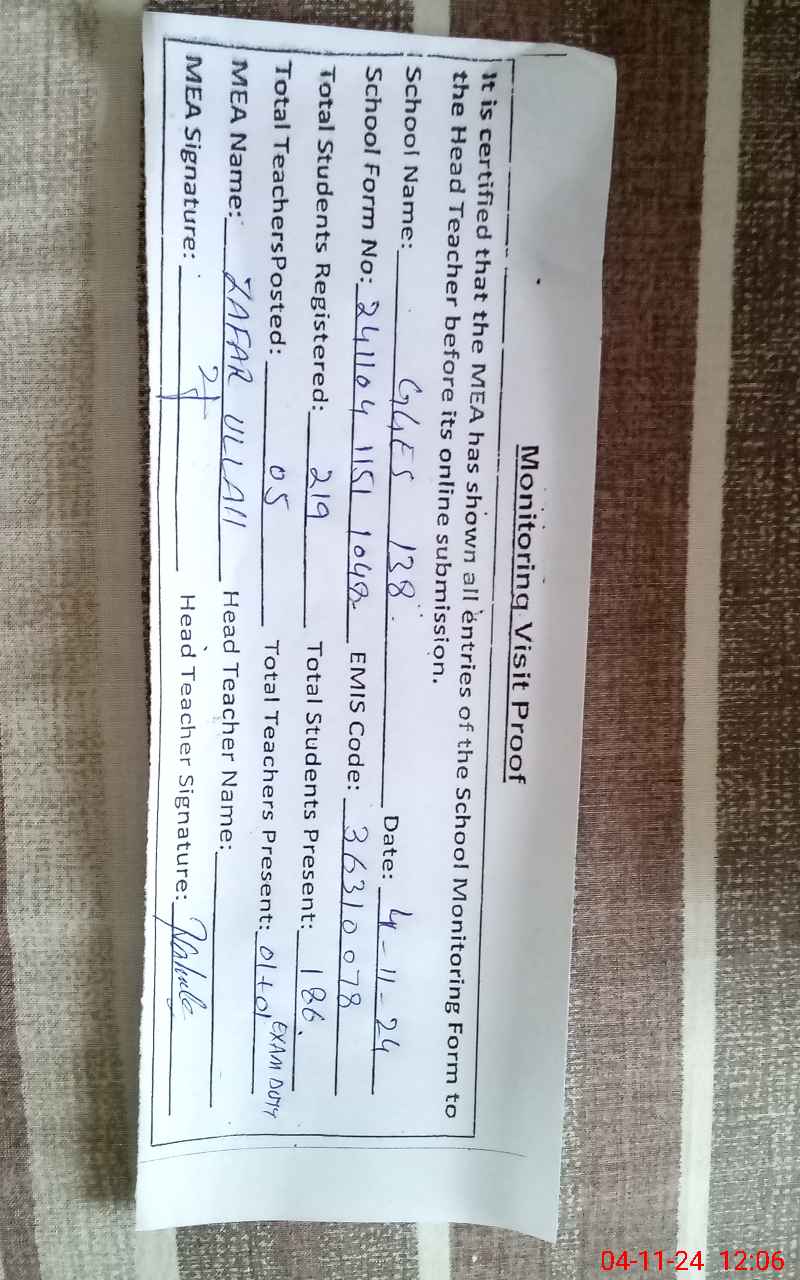 Monitoring Visit Proof
It is certified that the MEA has shown all entries of the School Monitoring Form to
the Head Teacher before its online submission.
School Name: GGES 138 Date: 4-11-24
School Form No: 241104 1151 1048 EMIS Code: 36310078
Total Students Registered: 219 Total Students Present: 186
Total TeachersPosted: 05 Total Teachers Present: 01+01 EXAM DUTY
MEA Name: ZAFAR ULLAH Head Teacher Name:
MEA Signature: Head Teacher Signature:
04-11-24 12:06